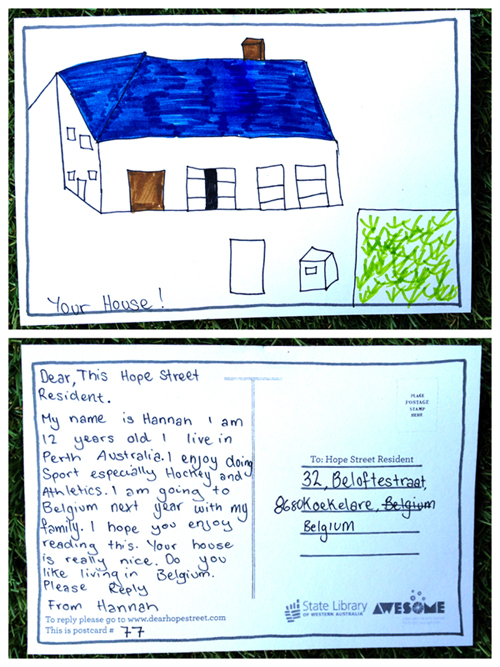 Your House!
Dear, This Hope Street
Resident.
My name is Hannah I am
12 years old I live in
Perth Australia. I enjoy doing
Sport especially Hockey and
Athletics. I am going to
Belgium next year with my
family. I hope you enjoy
reading this. Your house
is really nice. Do you
like living in Belgium.
Please Reply
From Hannah
To reply please go to www.dearhopestreet.com
This is postcard # 77
PLACE
POSTAGE
STAMP
HERE
To: Hope Street Resident
32, Beloftestraat,
8680 Koekelare, Belgium
Belgium
State Library
OF WESTERN AUSTRALIA
AWESOME